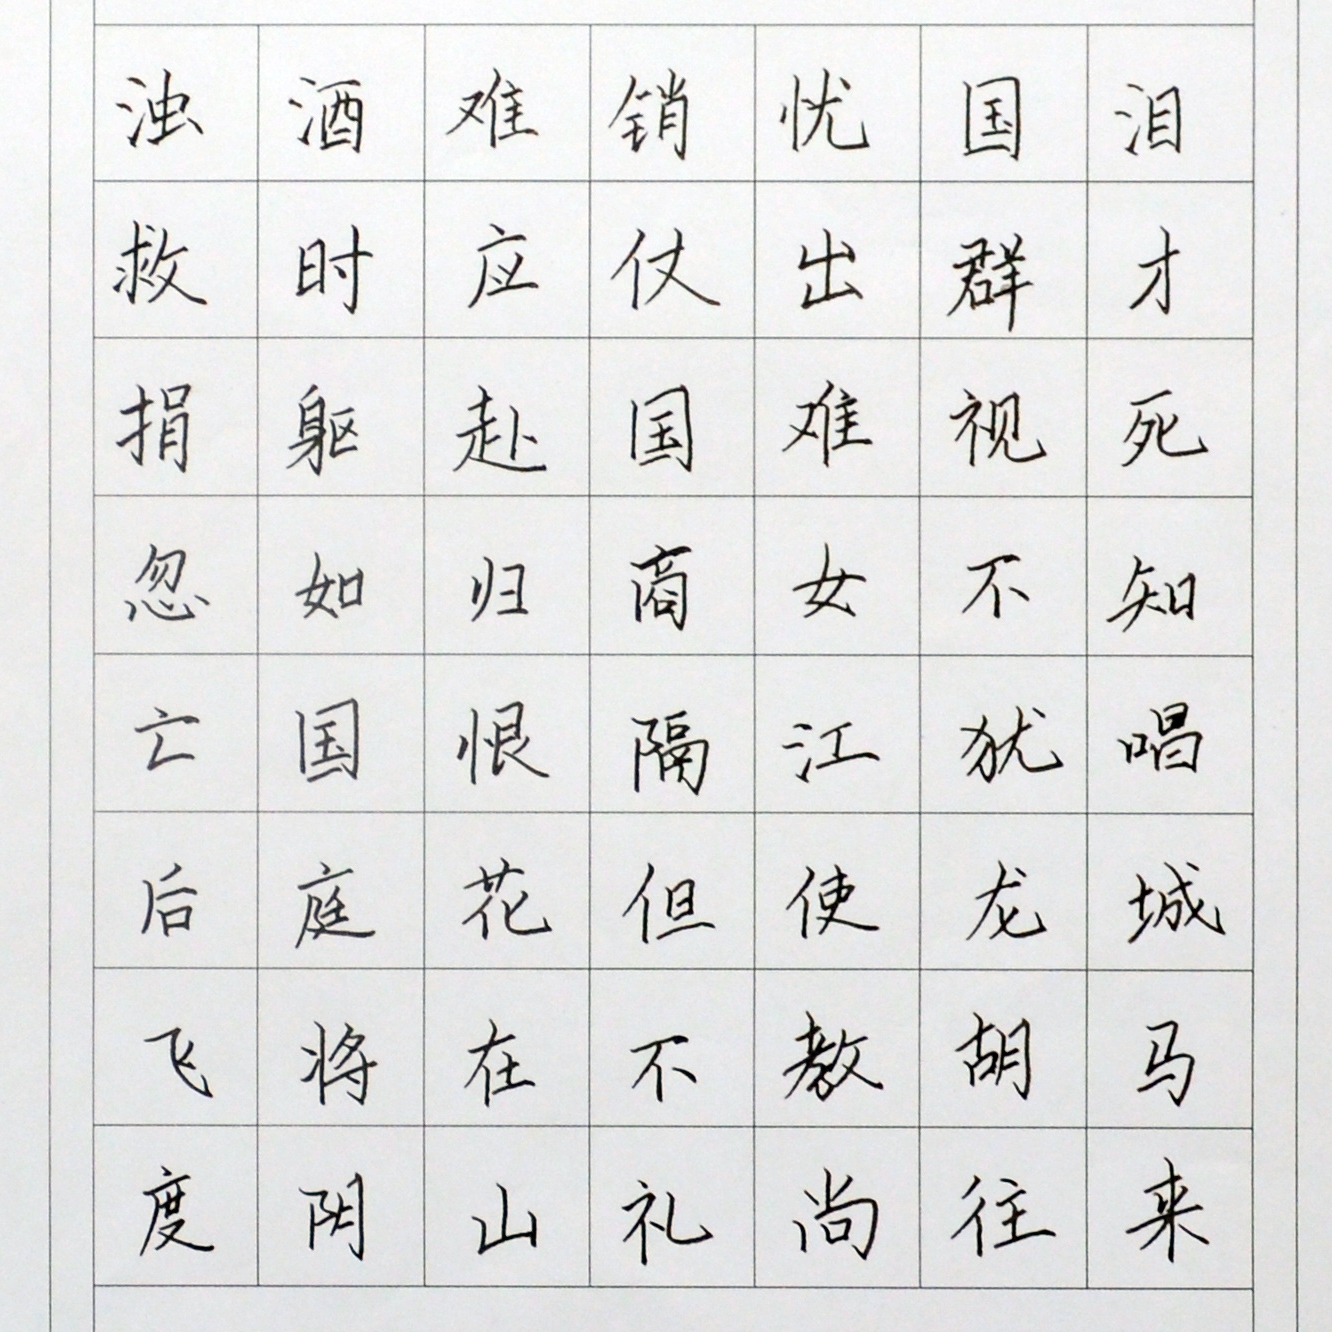 浊酒难销忧国泪
救时应仗出群才
捐躯赴国难视死
忽如归商女不知
亡国恨隔江犹唱
后庭花但使龙城
飞将在不教胡马
度阴山礼尚往来